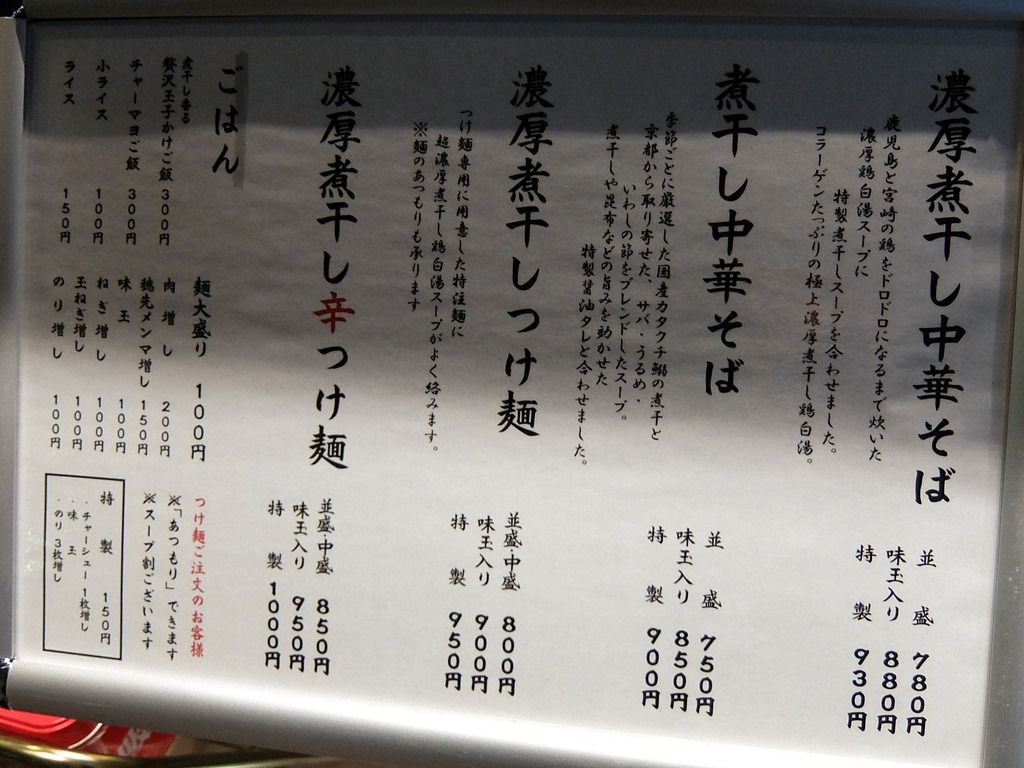 濃厚煮干し中華そば
鹿児島と宮崎の鶏をドロドロになるまで炊いた
濃厚鶏白湯スープに
特製煮干しスープを合わせました。
コラーゲンたっぷりの極上濃厚煮干し鶏白湯。
並盛 780円
味玉入り 880円
特製 930円
煮干し中華そば
季節ごとに厳選した国産カタクチ鰯の煮干と
京都から取り寄せた、サバ・うるめ・
いわしの節をブレンドしたスープ。
煮干しや昆布などの旨みを効かせた
特製醤油タレと合わせました。
並盛 750円
味玉入り 850円
特製 900円
濃厚煮干しつけ麺
つけ麺専用に用意した特注麺に
超濃厚煮干し鶏白湯スープがよく絡みます。
※麺のあつもりも承ります
並盛・中盛 800円
味玉入り 900円
特製 950円
濃厚煮干し辛つけ麺
並盛・中盛 850円
味玉入り 950円
特製 1000円
ごはん
煮干し香る
贅沢玉子かけご飯 300円
チャーマヨご飯 300円
小ライス 100円
ライス 150円
麺大盛り 100円
肉増し 200円
穂先メンマ増し 150円
味玉 100円
ねぎ増し 100円
玉ねぎ増し 100円
のり増し 100円
つけ麺ご注文のお客様
※「あつもり」できます
※スープ割ございます
特製 150円
・チャーシュー1枚増し
・味玉
・のり3枚増し